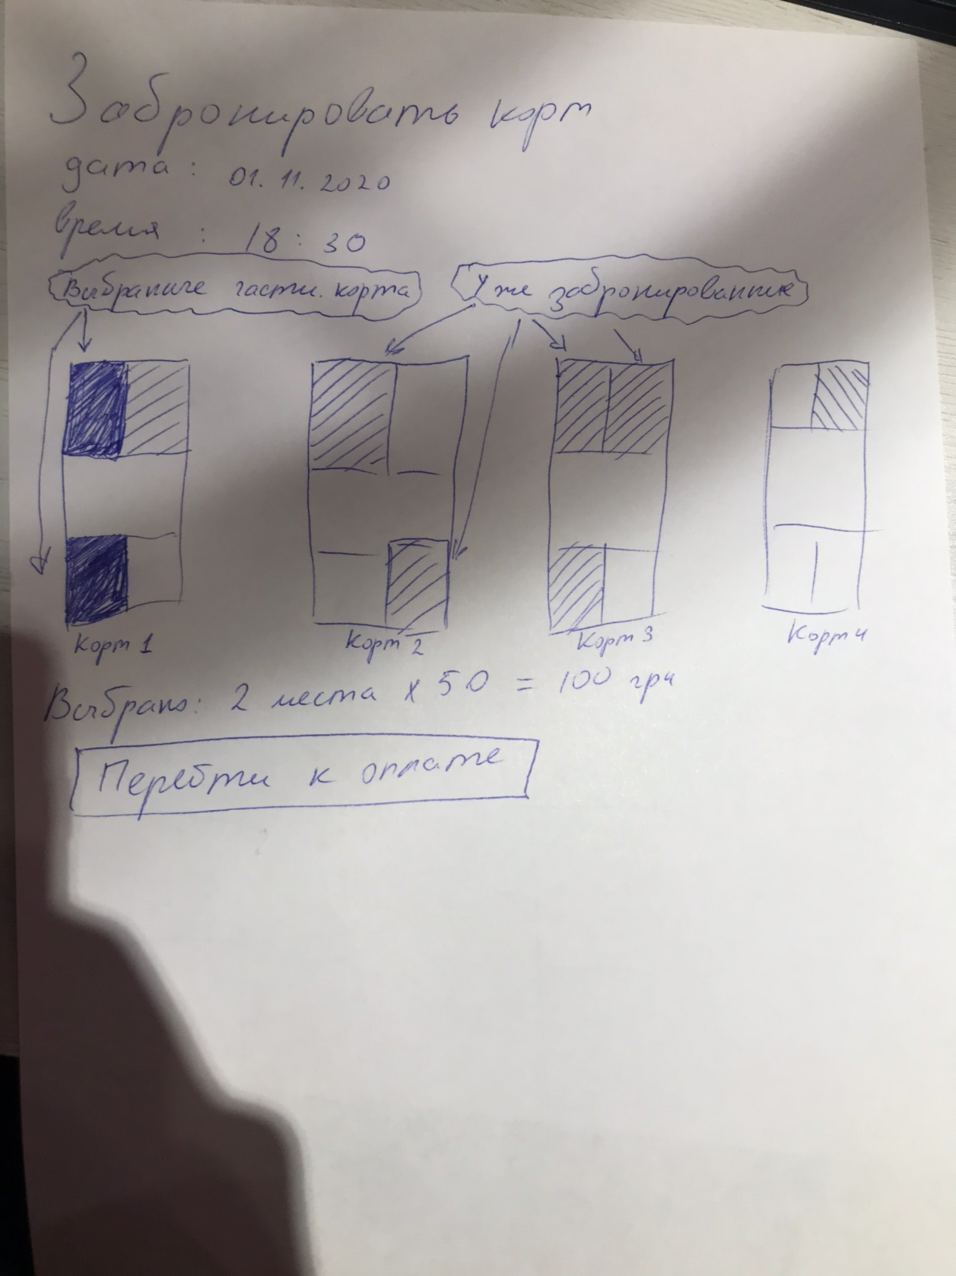 Забронировать корт
дата : 01.11.2020
время : 18 : 30
Выбраные части корта
Уже забронированные
Корт 1
Корт 2
Корт 3
Корт 4
Выбрано: 2 места х 50 = 100 грн
Перейти к оплате